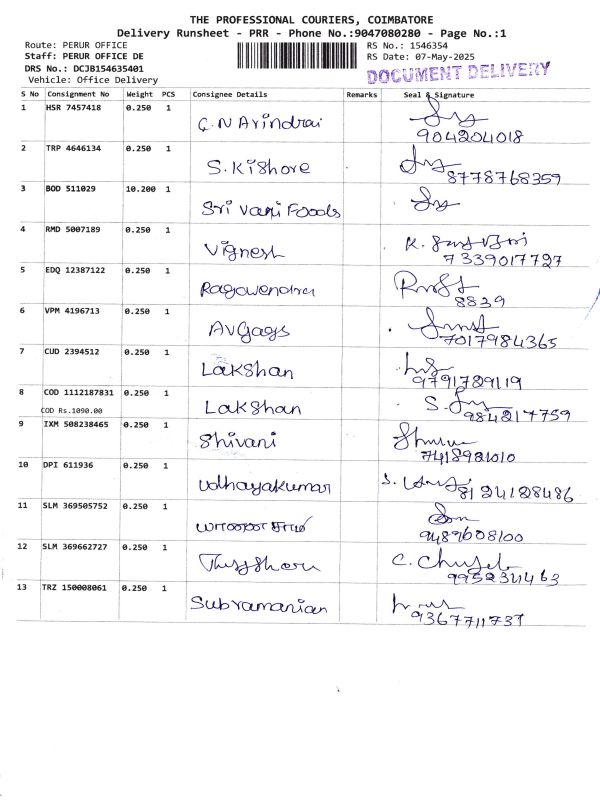 THE PROFESSIONAL COURIERS, COIMBATORE
Delivery Runsheet - PRR - Phone No.:9047080280 - Page No.:1
Route: PERUR OFFICE
RS No.: 1546354
Staff: PERUR OFFICE DE
RS Date: 07-May-2025
DRS No.: DCJB154635401
DOCUMENT DELIVERY
Vehicle: Office Delivery
S No Consignment No Weight PCS Consignee Details Remarks Seal & Signature
1 HSR 7457418 0.250 1
G.N Arindrai
904204018
2 TRP 4646134 0.250 1
S.Kishore
8778768359
3 BOD 511029 10.200 1
Sri Vani Foods
4 RMD 5007189 0.250 1
Vignesh
7339017727
5 EDQ 12387122 0.250 1
Ragavendra
8839
6 VPM 4196713 0.250 1
AVGags
7017984365
7 CUD 2394512 0.250 1
Lakshan
9791789119
8 COD 1112187831 0.250 1
COD Rs.1090.00
Lakshan
984217759
9 IXM 508238465 0.250 1
Shivani
7418921010
10 DPI 611936 0.250 1
Udhayakumar
8124128486
11 SLM 369505752 0.250 1
9489608100
12 SLM 369662727 0.250 1
9952321463
13 TRZ 150008061 0.250 1
Subramanian
9367711737